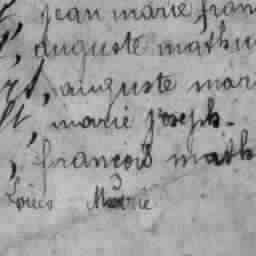 , jean marie fran
, auguste mathu
, auguste mari
, marie joseph.
, françois math
Louis Marie